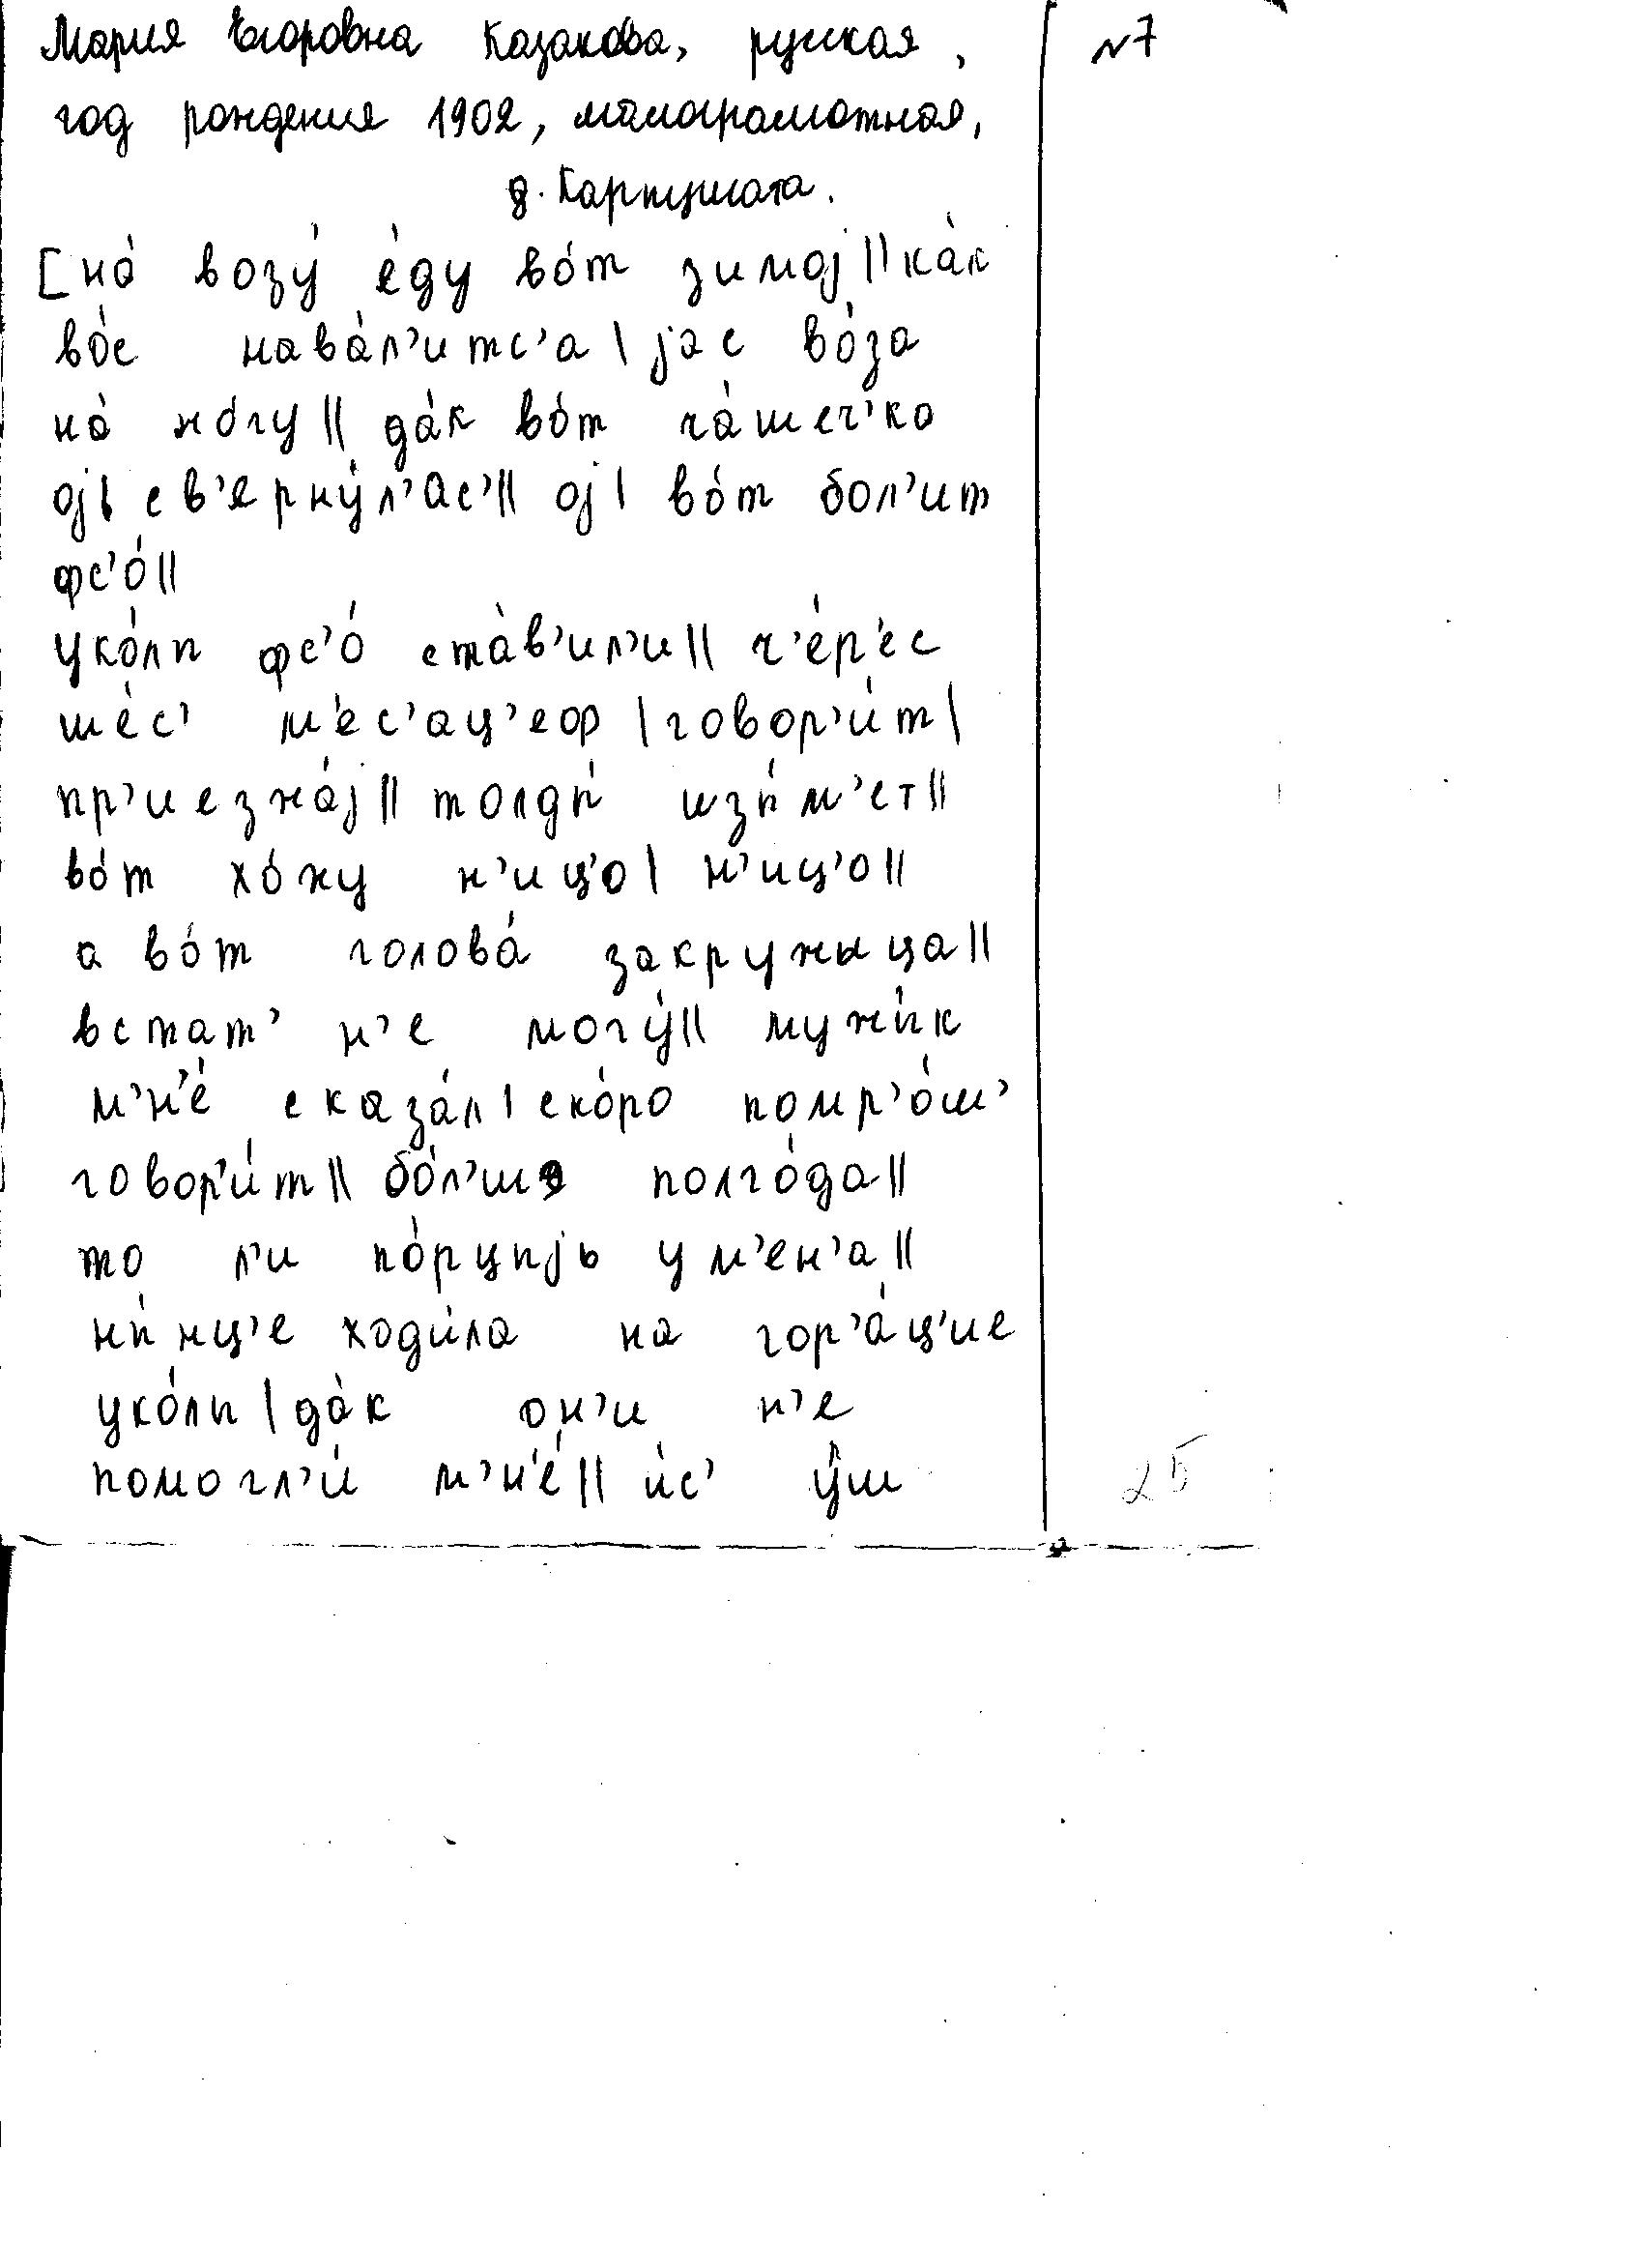 Мария Егоровна Казакова, русская, №7
год рождения 1902, малограмотная,
д. Карпушата.
[на́ возу́ е́ду во́т зимоj || ка́к
во́с нава́л’итс’а | jэ с во́за
на́ но́гу || да́к во́т ча́шеч’ка
оj | св’ярну́л’ас’ || оj | во́т бол’ит
фс’о́ ||
уко́лы фс’о́ ста́в’ил’и || ч’е́р’ес
ше́с’ м’е́с’ац’еф | говор’и́т |
пр’иезжа́j || толды́ изы́м’ет ||
во́т хо́жу н’иц’о | н’иц’о ||
а во́т голова́ закружыца ||
встат’ н’е могу́ || мужы́к
м’н’е́ сказа́л | ско́ро помр’о́ш’
говор’и́т || бо́л’шэ полго́да ||
то л’и по́рцыjь у м’ен’а ||
ны́нц’е ходи́ла на гор’а́ц’ие
уко́лы | да́к он’и н’е
помогл’и́ м’н’е́ || и́с’ у́ш
25